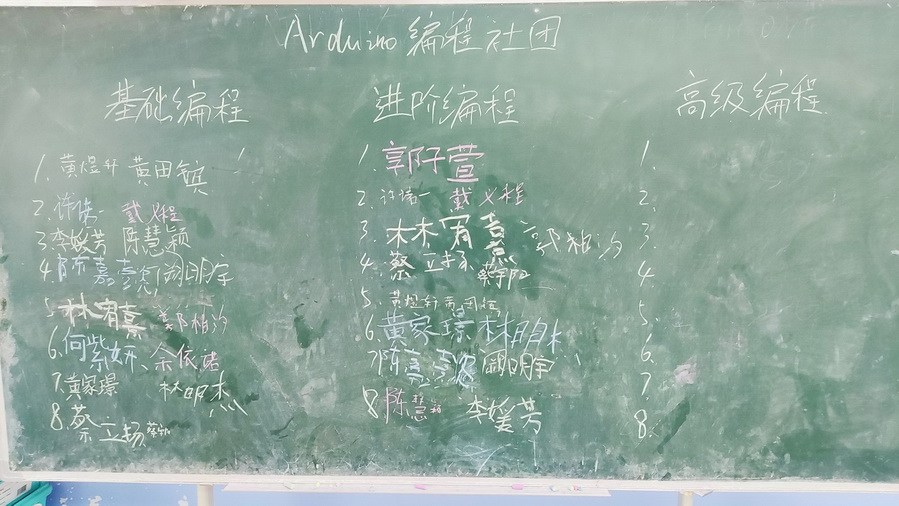 Arduino编程社团
基础编程
1. 黄煜轩 黄田镇
2. 许瑞一 戴义程
3. 李媛芳 陈慧颖
4. 陈嘉亮 阙明宇
5. 林宥熹 郭柏汐
6. 何紫妍 余依洁
7. 黄家璟 林明杰
8. 蔡立扬
进阶编程
1. 郭子萱
2. 许瑞一 戴义程
3. 林宥熹 郭柏汐
4. 蔡立扬
5. 黄煜轩 黄田镇
6. 黄家璟 林明杰
7. 陈嘉亮 阙明宇
8. 陈慧颖 李媛芳
高级编程
1.
2.
3.
4.
5.
6.
7.
8.